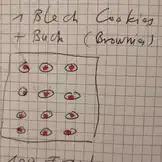 1 Blech Cookies
+ Buch (Brownies)